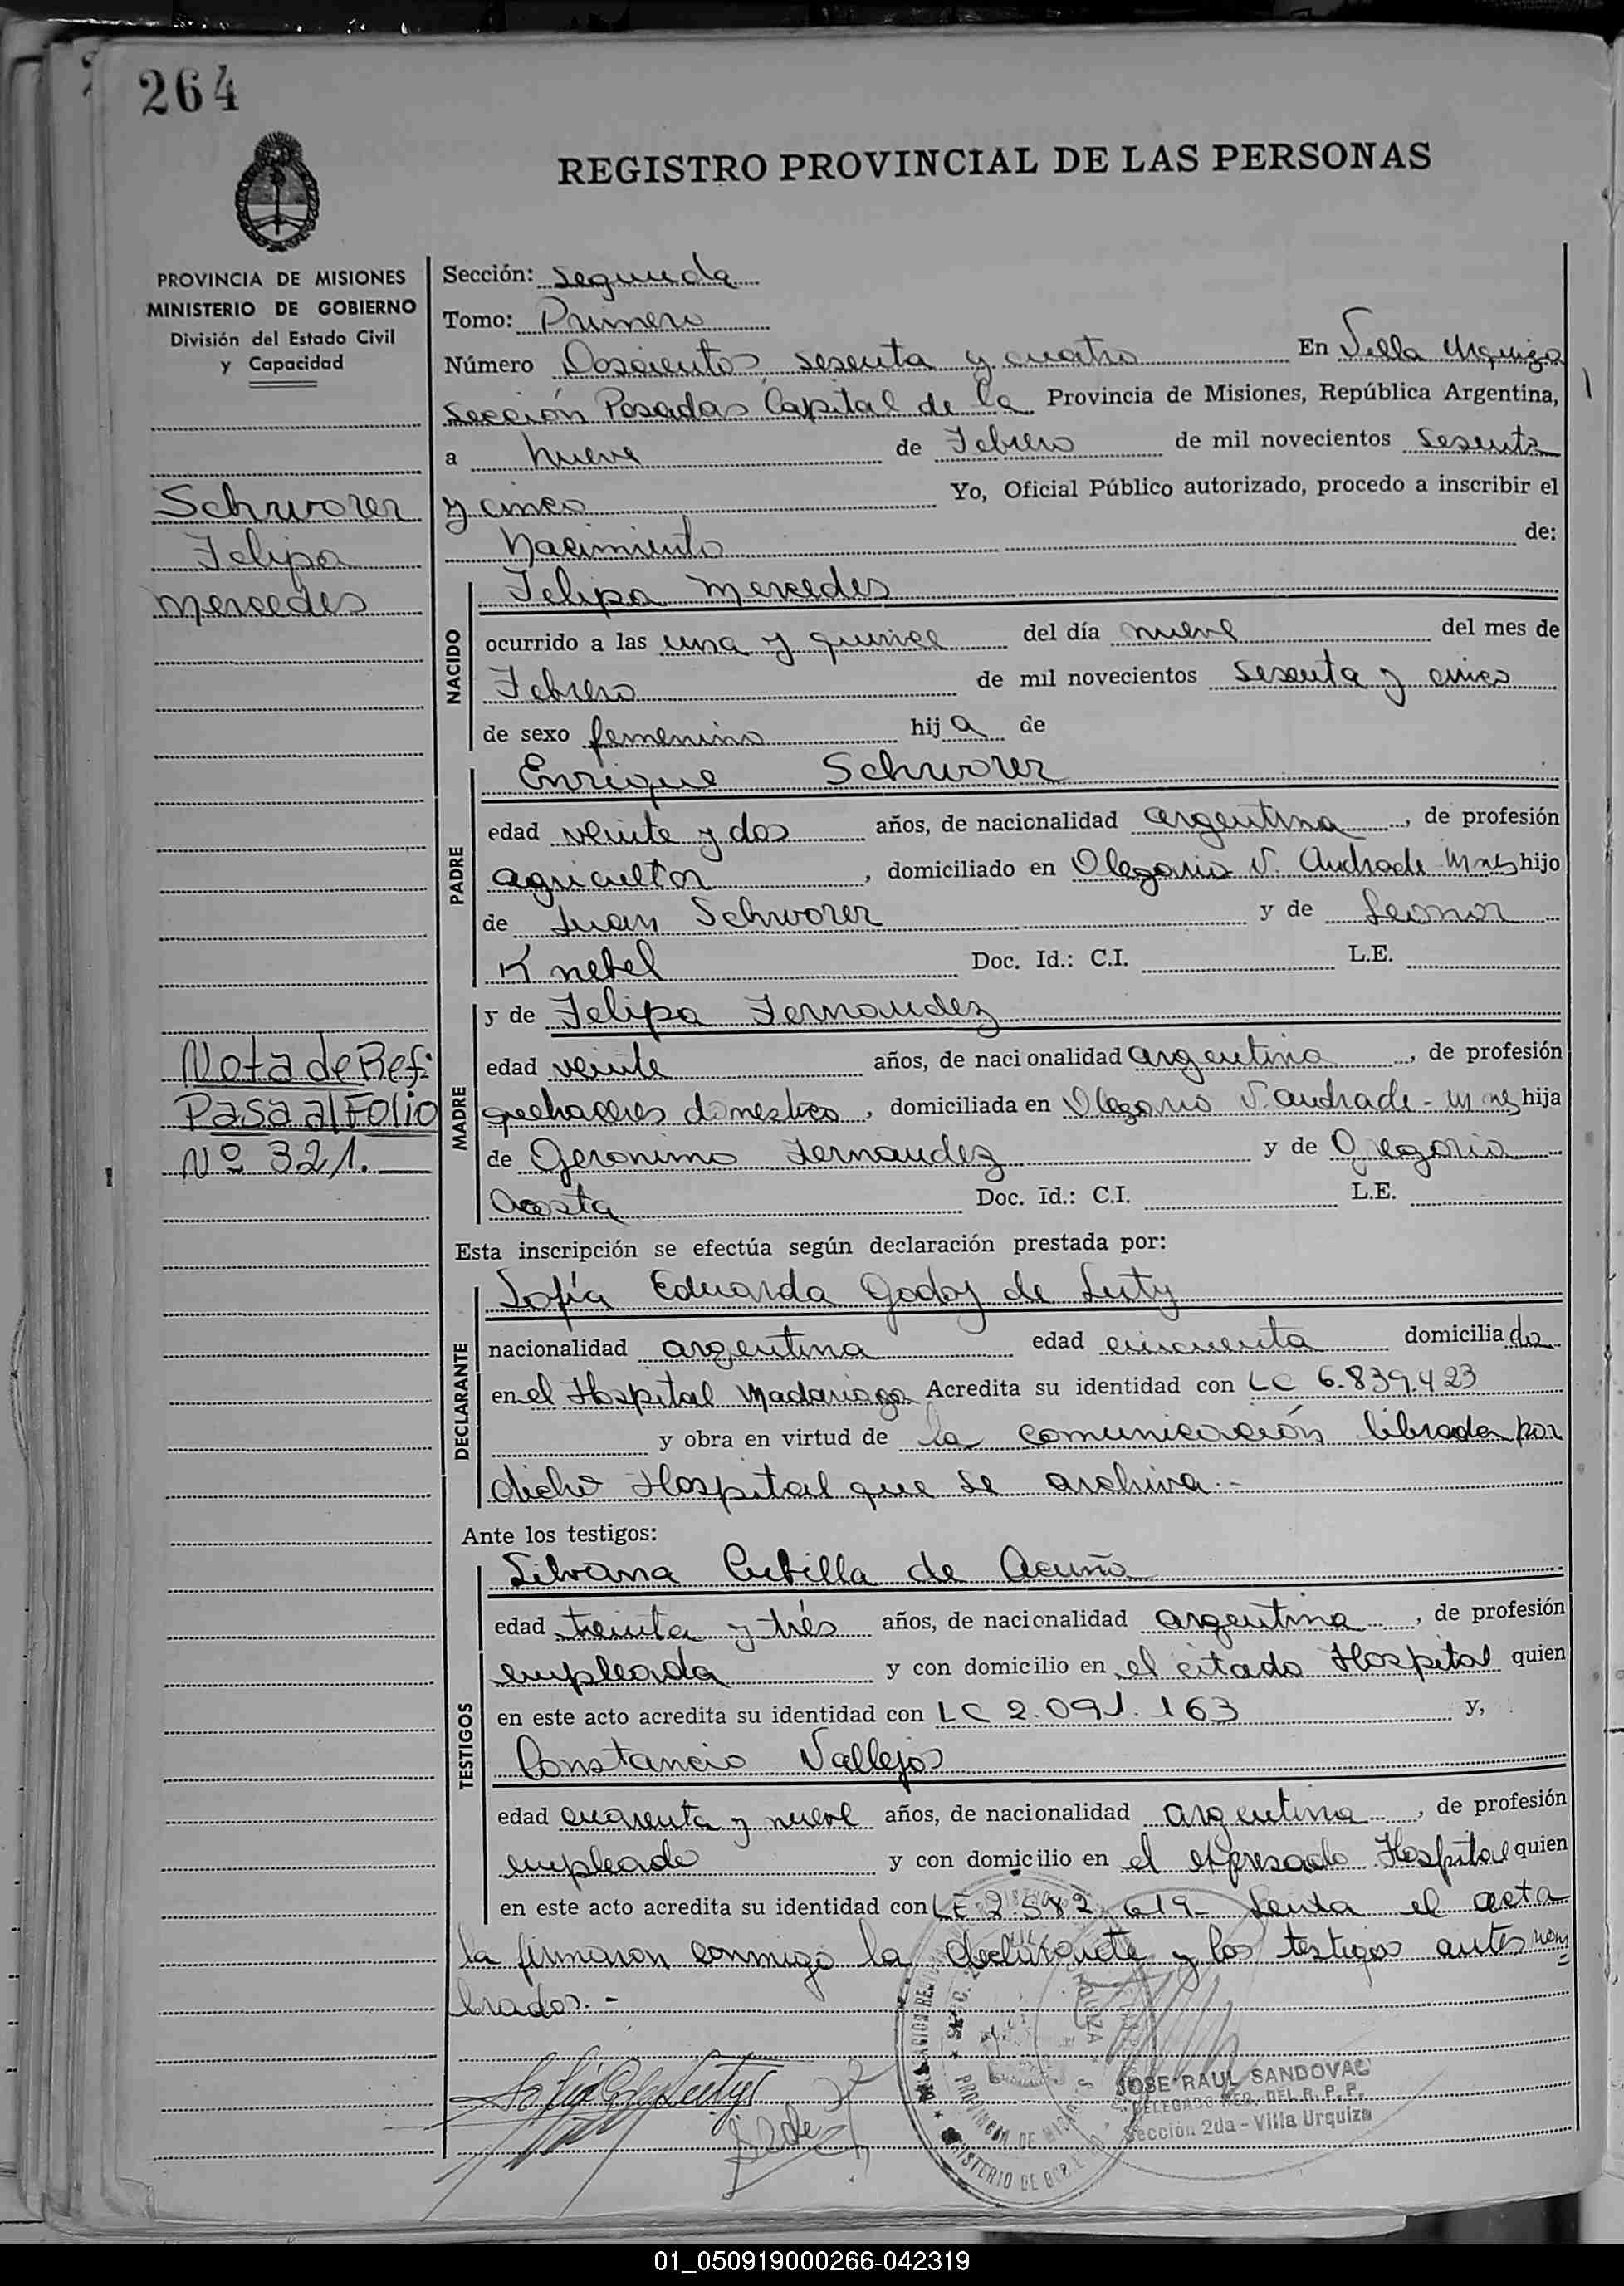 264
REGISTRO PROVINCIAL DE LAS PERSONAS
PROVINCIA DE MISIONES
MINISTERIO DE GOBIERNO
División del Estado Civil
y Capacidad
Schworer
Felipa
Mercedes
Nota de Ref:
Pasa al Folio
Nº 321.
Sección: Segunda
Tomo: Primero
Número Doscientos sesenta y cuatro En Villa Urquiza
Sección Posadas Capital de la Provincia de Misiones, República Argentina,
a nueve de Febrero de mil novecientos sesenta
y cinco Yo, Oficial Público autorizado, procedo a inscribir el
Nacimiento de:
NACIDO
Felipa Mercedes
ocurrido a las una y quince del día nueve del mes de
Febrero de mil novecientos sesenta y cinco
de sexo femenino hija de
PADRE
Enrique Schworer
edad veinte y dos años, de nacionalidad argentina, de profesión
agricultor, domiciliado en Olegario V. Andrade Mnes hijo
de Juan Schworer y de Leonor
Knebel Doc. Id.: C.I. L.E.
MADRE
y de Felipa Fernandez
edad veinte años, de nacionalidad argentina, de profesión
quehaceres domestico, domiciliada en Olegario V. Andrade - Mnes hija
de Geronimo Fernandez y de Gregoria
Acosta Doc. Id.: C.I. L.E.
Esta inscripción se efectúa según declaración prestada por:
DECLARANTE
Sofía Eduarda Godoy de Luty
nacionalidad argentina edad cincuenta domiciliada
en el Hospital Madariaga Acredita su identidad con LC 6.839.423
y obra en virtud de la comunicación librada por
dicho Hospital que se archiva.-
Ante los testigos:
TESTIGOS
Silvana Cubilla de Acuña
edad treinta y trés años, de nacionalidad argentina, de profesión
empleada y con domicilio en el citado Hospital quien
en este acto acredita su identidad con LC 2.091.163 y,
Constancio Vallejos
edad cuarenta y nueve años, de nacionalidad argentina, de profesión
empleado y con domicilio en el expresado Hospital quien
en este acto acredita su identidad con LE 2.582.619- Leida el acta
la firmaron conmigo la declarante y los testigos antes nom
brados.-
JOSE RAUL SANDOVAL
DELEGADO REG. DEL R. P. P.
Sección 2da - Villa Urquiza
PROVINCIA DE MISIONES
MINISTERIO DE GOBIERNO
01_050919000266-042319